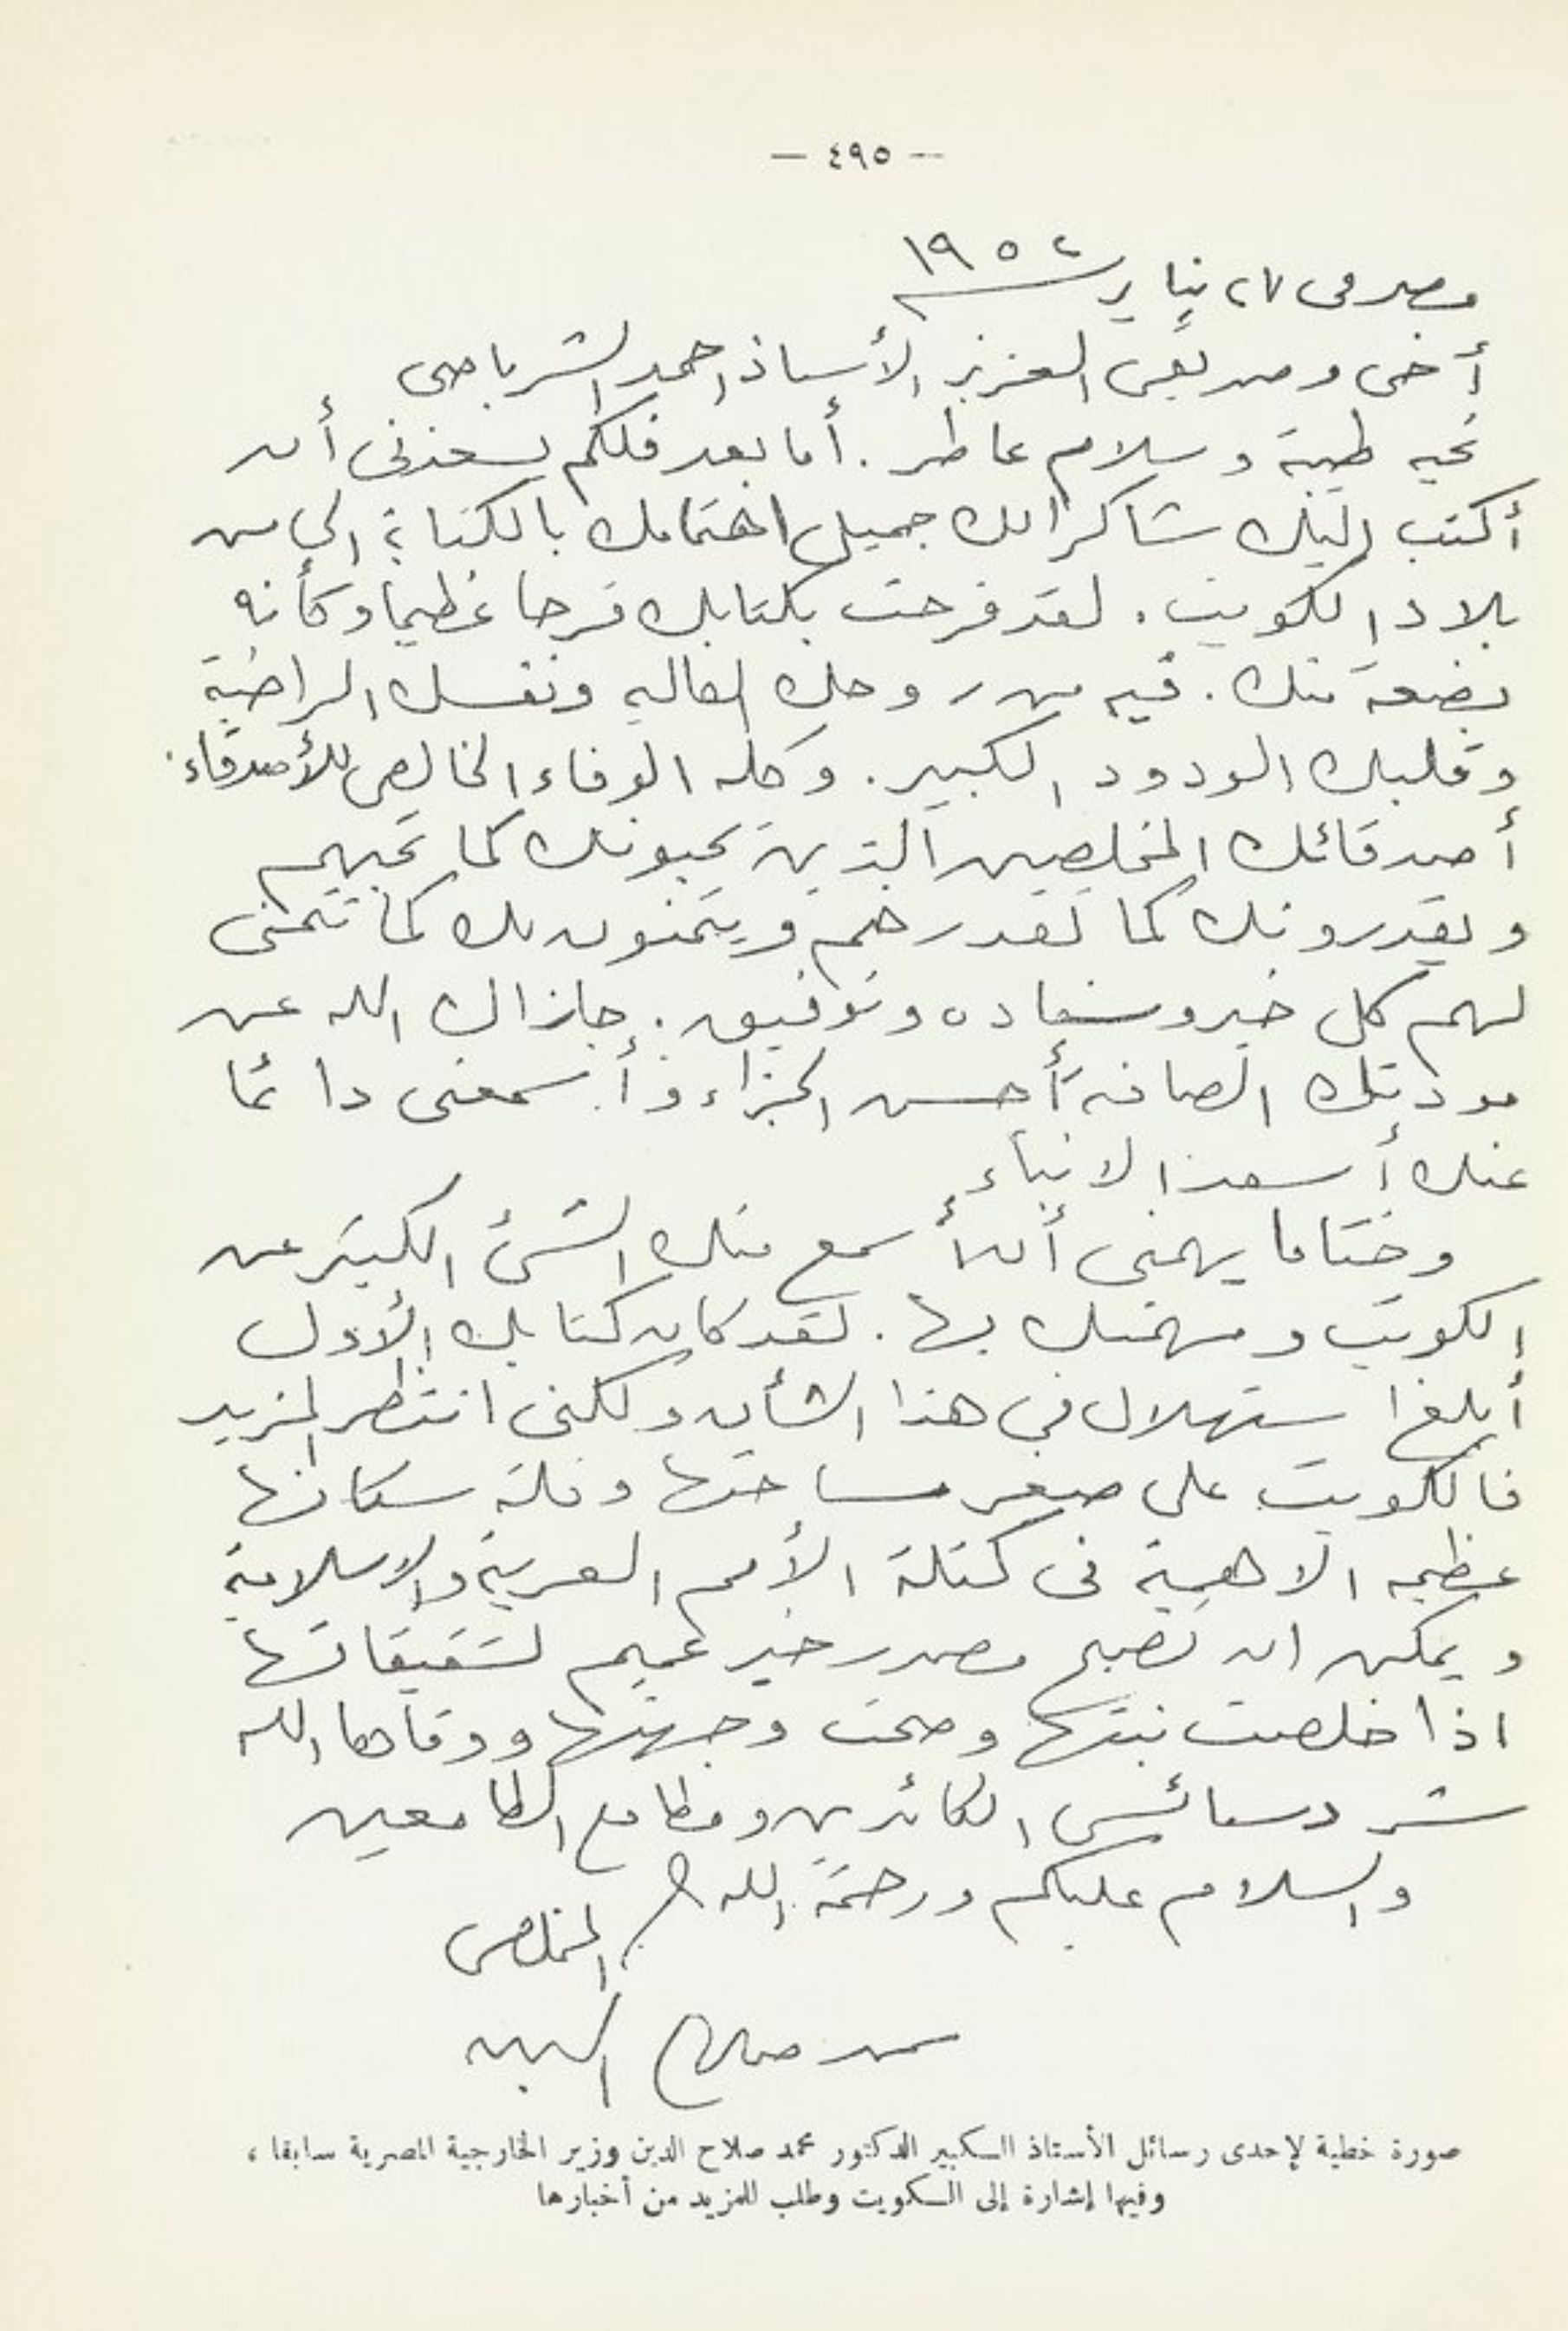 — ٤٩٥ —
مصر فى ٢٧ يناير ١٩٥٢
أخى وصديقى العزيز الأستاذ احمد الشرباصى
تحيه طيبة وسلام عاطر . أما بعد فلكم يسعدنى أن
أكتب إليك شاكرا لك جميل اهتمامك بالكتابة إلي من
بلاد الكويت . لقد فرحت بكتابك فرحا عظيما وكأنه
بضعة منك . فيه من روحك العاليه ونفسك الراضية
وقلبك الودود الكبير . وكله الوفاء الخالص للأصدقاء .
أصدقائك المخلصين الذين يحبونك كما تحبهم
ويقدرونك كما تقدرهم ويتمنون لك كما تتمنى
لهم كل خير وسعاده وتوفيق . جازاك الله عن
مودتك الصافية أحسن الجزاء وأسمعنى دائما
عنك أسعد الانباء
وختاما يهمنى أن أسمع منك الشئ الكثير عن
الكويت ومهمتك بها . لقد كان كتابك الأول
أبلغ استهلال في هذا الشأن ولكنى انتظر المزيد
فالكويت على صغر مساحتها وقلة سكانها
عظيمه الاهمية فى كتلة الأمم العربية والاسلامية
ويمكن ان تصبح مصدر خير عميم لشقيقاتها
اذا خلصت نيتها وصحت وجهتها ووقاها الله
شر دسائس الكائدين ومطامع الطامعين
والسلام عليكم ورحمة الله
المخلص
محمد صلاح الدين
صورة خطية لإحدى رسائل الأستاذ الكبير الدكتور محمد صلاح الدين وزير الخارجية المصرية سابقا ،
وفيها إشارة إلى الكويت وطلب للمزيد من أخبارها